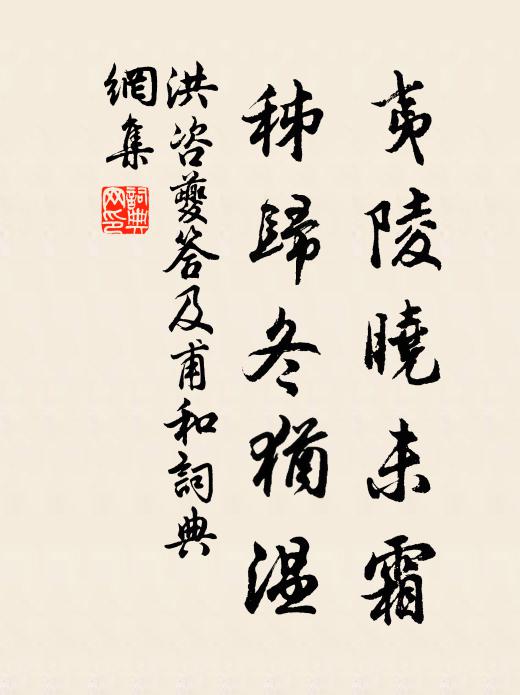 夷陵曉未霜
秭歸冬猶温
洪咨夔答及甫和詞典
網集
詞典网印